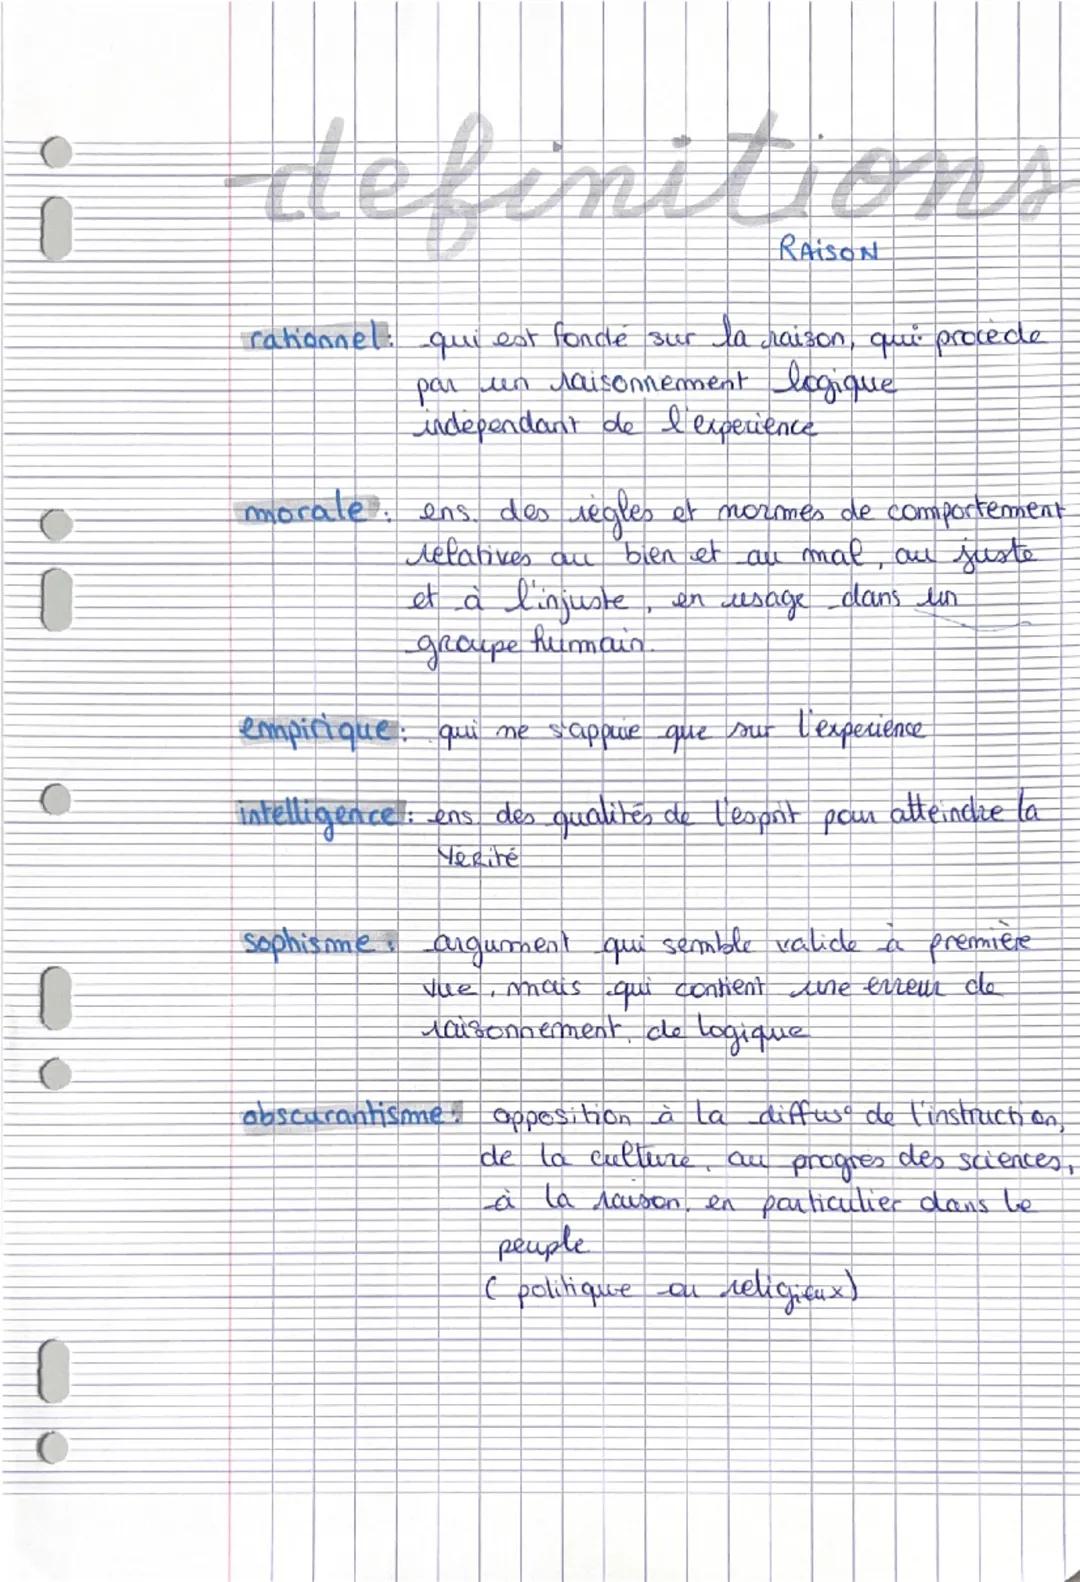 definitions
RAiSON
rationnel: qui est fondé sur la raison, qui procède
par un raisonnement logique
indépendant de l'experience
morale: ens. des règles et normes de comportement
relatives au bien et au mal, au juste
et à l'injuste, en usage dans un
groupe humain.
empirique: qui ne s'appuie que sur l'experience
intelligence: ens. des qualités de l'esprit pour atteindre la
vérité
sophisme: argument qui semble valide à première
vue, mais qui contient une erreur de
raisonnement, de logique
obscurantisme: opposition à la diffus° de l'instruction,
de la culture, au progrès des sciences,
à la raison, en particulier dans le
peuple
(politique ou religieux)